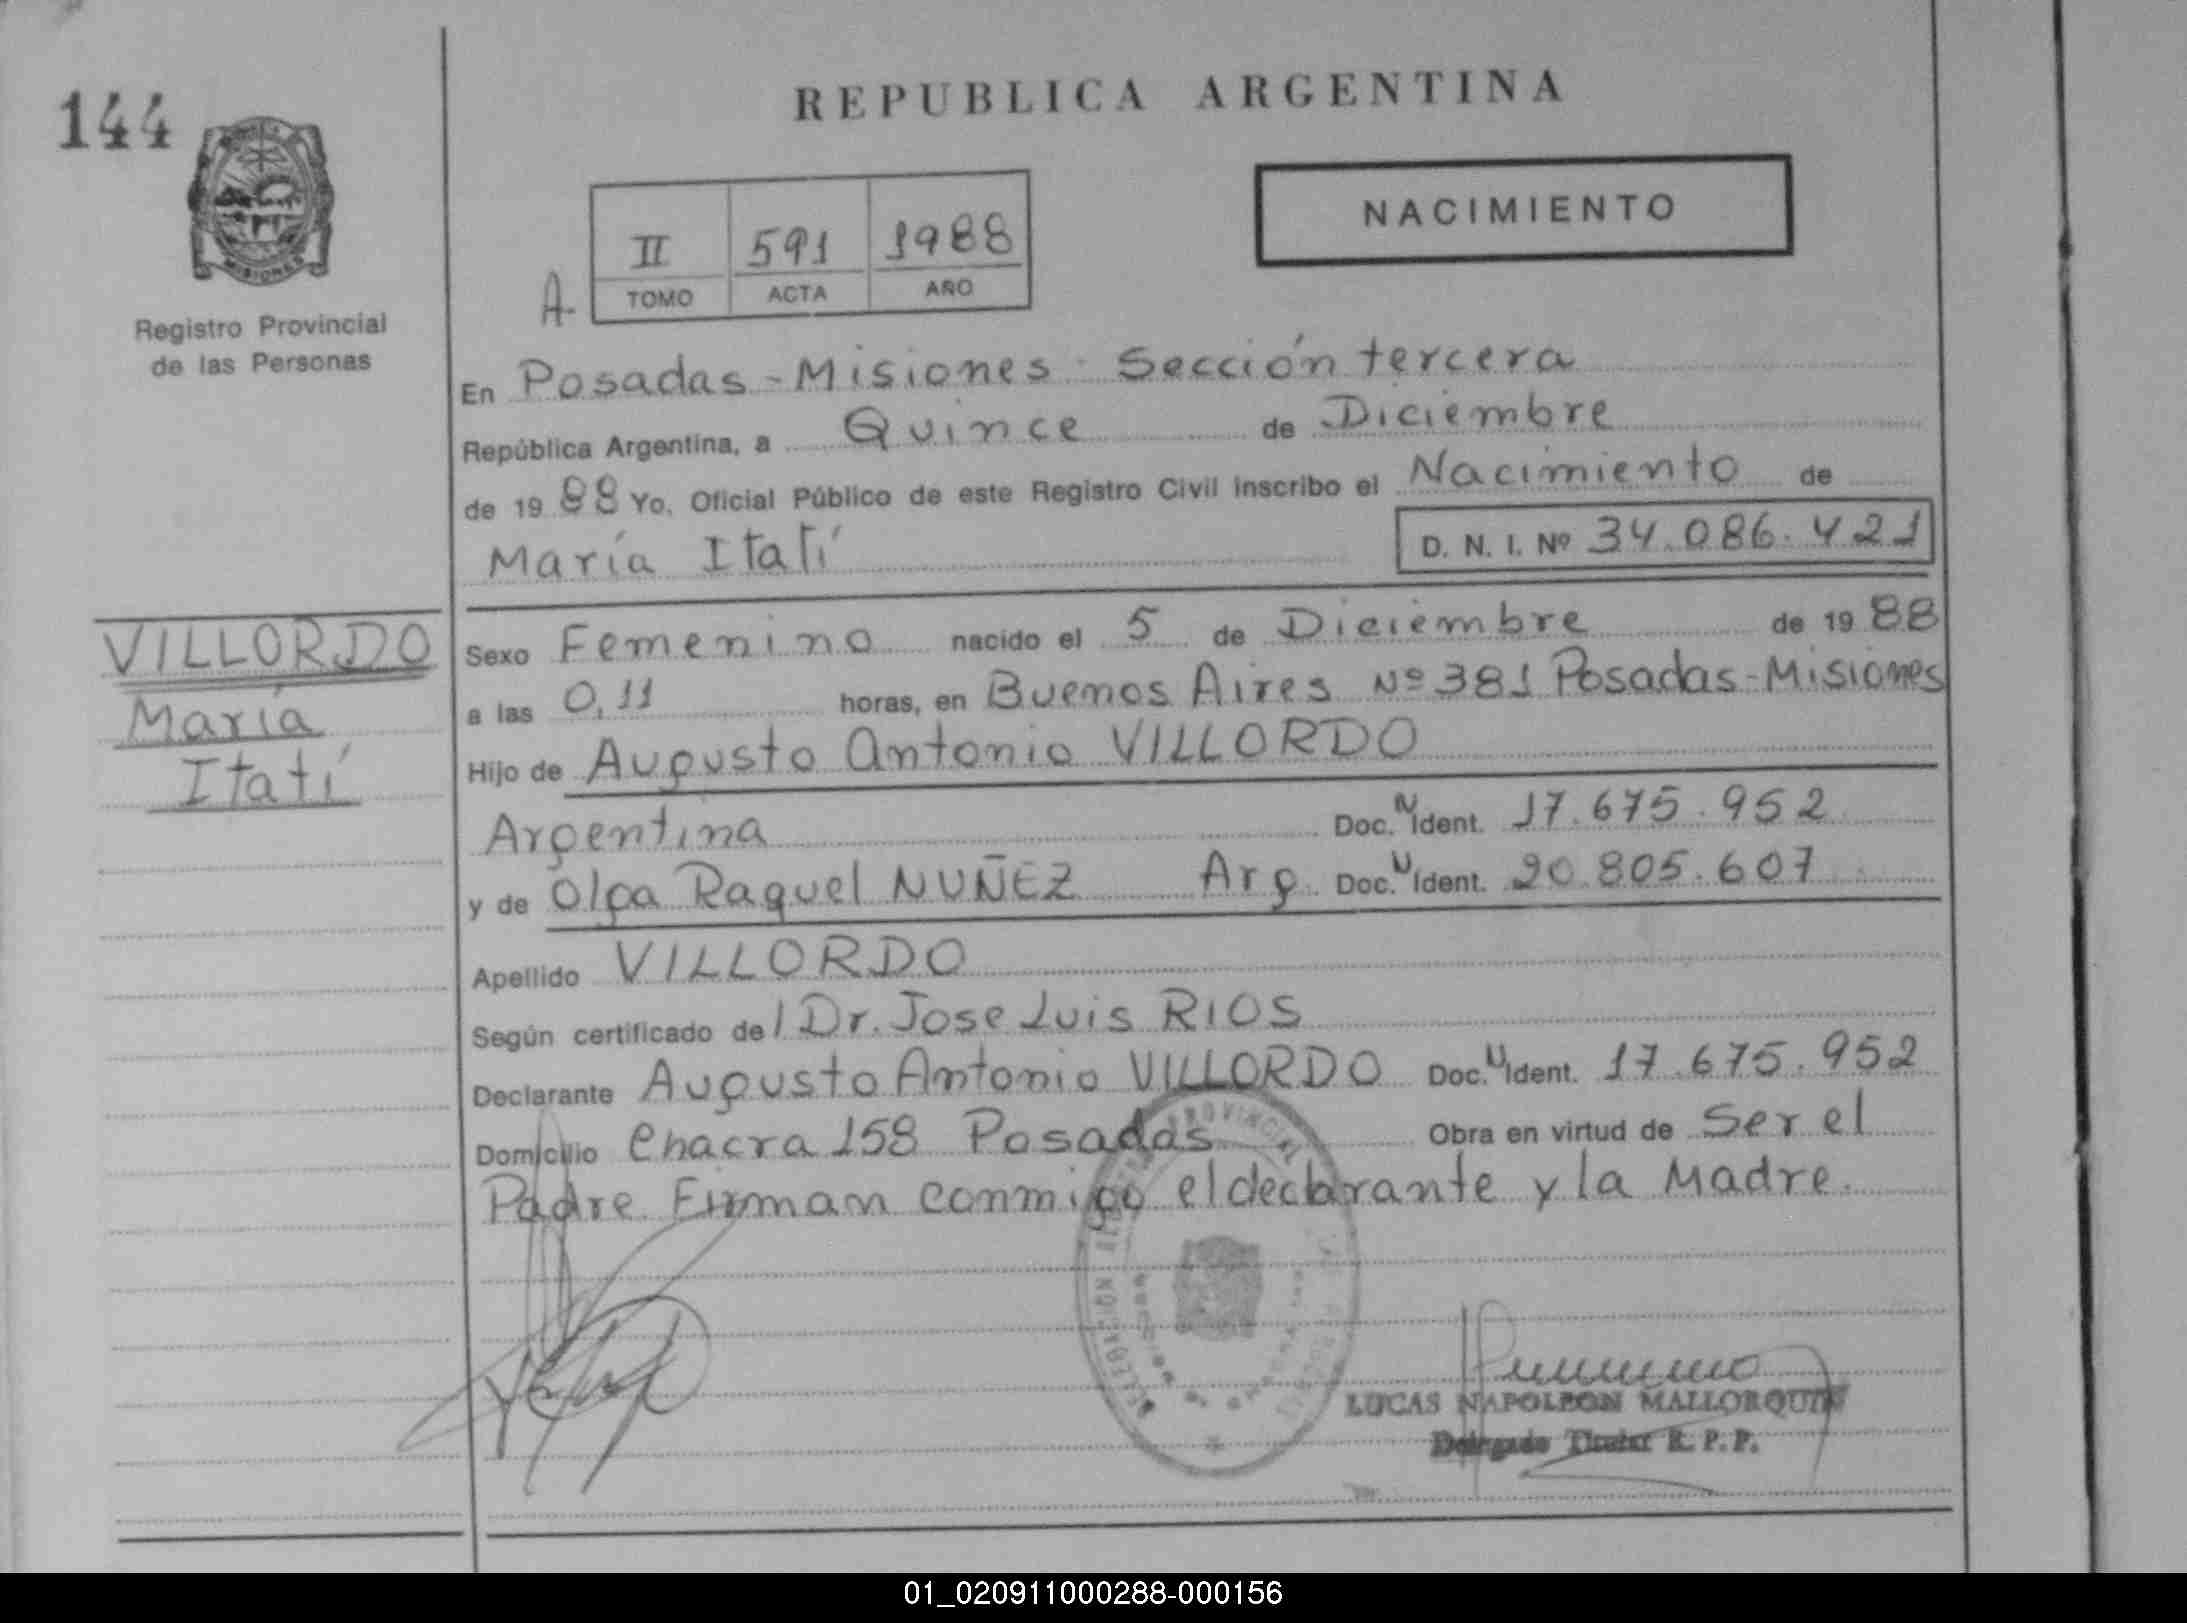 REPUBLICA ARGENTINA
144
MISIONES
Registro Provincial
de las Personas
NACIMIENTO
A- II 591 1988
TOMO ACTA AÑO
En Posadas - Misiones - Sección tercera
República Argentina, a Quince de Diciembre
de 19 88 Yo, Oficial Público de este Registro Civil inscribo el Nacimiento de
María Itatí D. N. I. Nº 34.086.421
VILLORDO
María
Itatí
Sexo Femenino nacido el 5 de Diciembre de 19 88
a las 0,11 horas, en Buenos Aires Nº 381 Posadas - Misiones
Hijo de Augusto Antonio VILLORDO
Argentina Doc. N Ident. 17.675.952
y de Olga Raquel NUÑEZ Arg. Doc. U Ident. 20.805.607
Apellido VILLORDO
Según certificado del Dr. Jose Luis RIOS
Declarante Augusto Antonio VILLORDO Doc. U Ident. 17.675.952
Domicilio Chacra 158 Posadas Obra en virtud de Ser el
Padre. Firman conmigo el declarante y la Madre.
PROVINCIAL
DELEGACION
LUCAS NAPOLEON MALLORQUIN
Delegado Titular R. P. P.
01_020911000288-000156